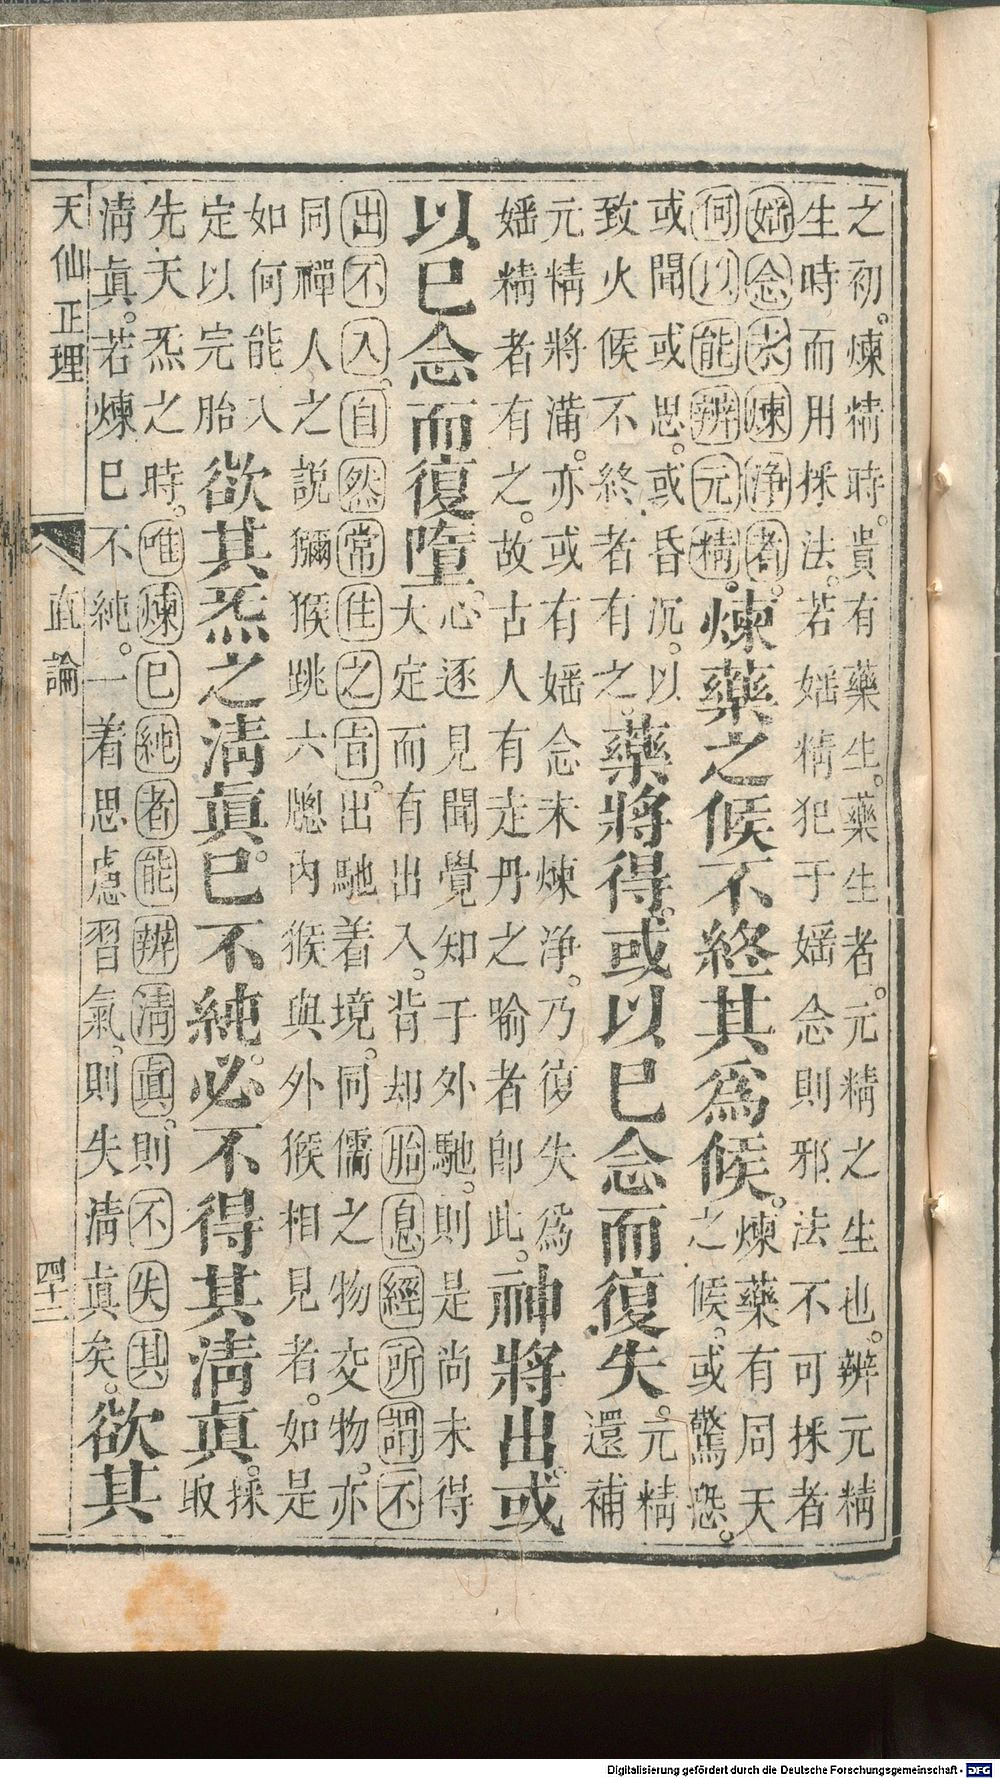 之初。煉精時。貴有藥生。藥生者。元精之生也。辨元精
生時而用採法。若婬精犯于婬念則邪法不可採者
婬念未煉淨者。
何以能辨元精。
煉藥之候不終其爲候。
煉藥有同天
之候。或驚恐。
或聞或思。或昏沉。以
致火候不終者有之。
藥將得。或以巳念而復失。
元精
還補
元精將滿。亦或有婬念未煉淨。乃復失爲
婬精者有之。故古人有走丹之喻者即此。
神將出。或
以巳念而復墮。
心逐見聞覺知于外馳。則是尚未得
大定而有出入。背却胎息經所謂不
出不入。自然常住之旨。出馳着境。同儒之物交物。亦
同禪人之説獼猴跳六牕内猴與外猴相見者。如是
如何能入
定以完胎
欲其炁之清眞。巳不純。必不得其清眞。
採
取
先天炁之時。唯煉巳純者能辨清眞。則不失其
清眞。若煉巳不純。一着思慮習氣。則失清眞矣。
欲其
天仙正理 直論 四十二
Digitalisierung gefördert durch die Deutsche Forschungsgemeinschaft - DFG